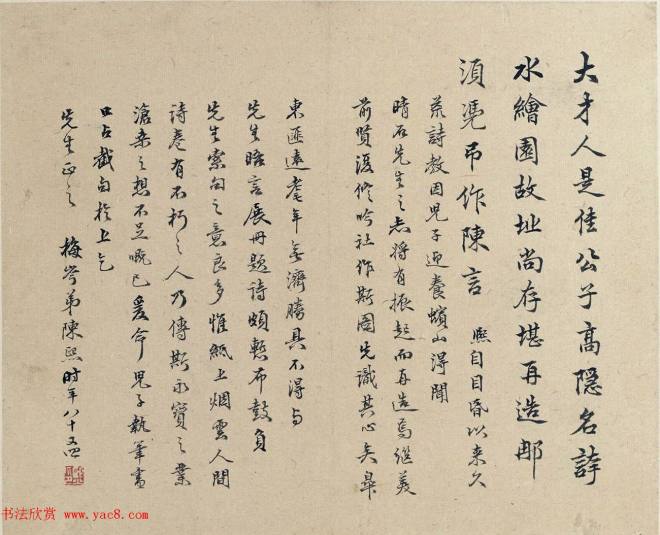 大才人是佳公子高隱名諱
水繪園故址尚存堪再造耶
須憑吊作陳言 熙自目昏以來久
荒詩教因兒子迎養蠙山得聞
晴石先生之志將有振起而再造焉繼美
前賢復修吟社作斯圖先識其心矣皋
東匯遠耄年無濟勝具不得與
先生晤言展冊題詩頗慙布鼓負
先生索句之意良多惟紙上烟雲人間
詩卷有不朽之人乃傳斯永寶之業
滄桑之想不足嘅已爰命兒子執筆書
口占截句於上乞
先生正之 梅岑弟陳熙時年八十五
书法欣赏 www.yac8.com